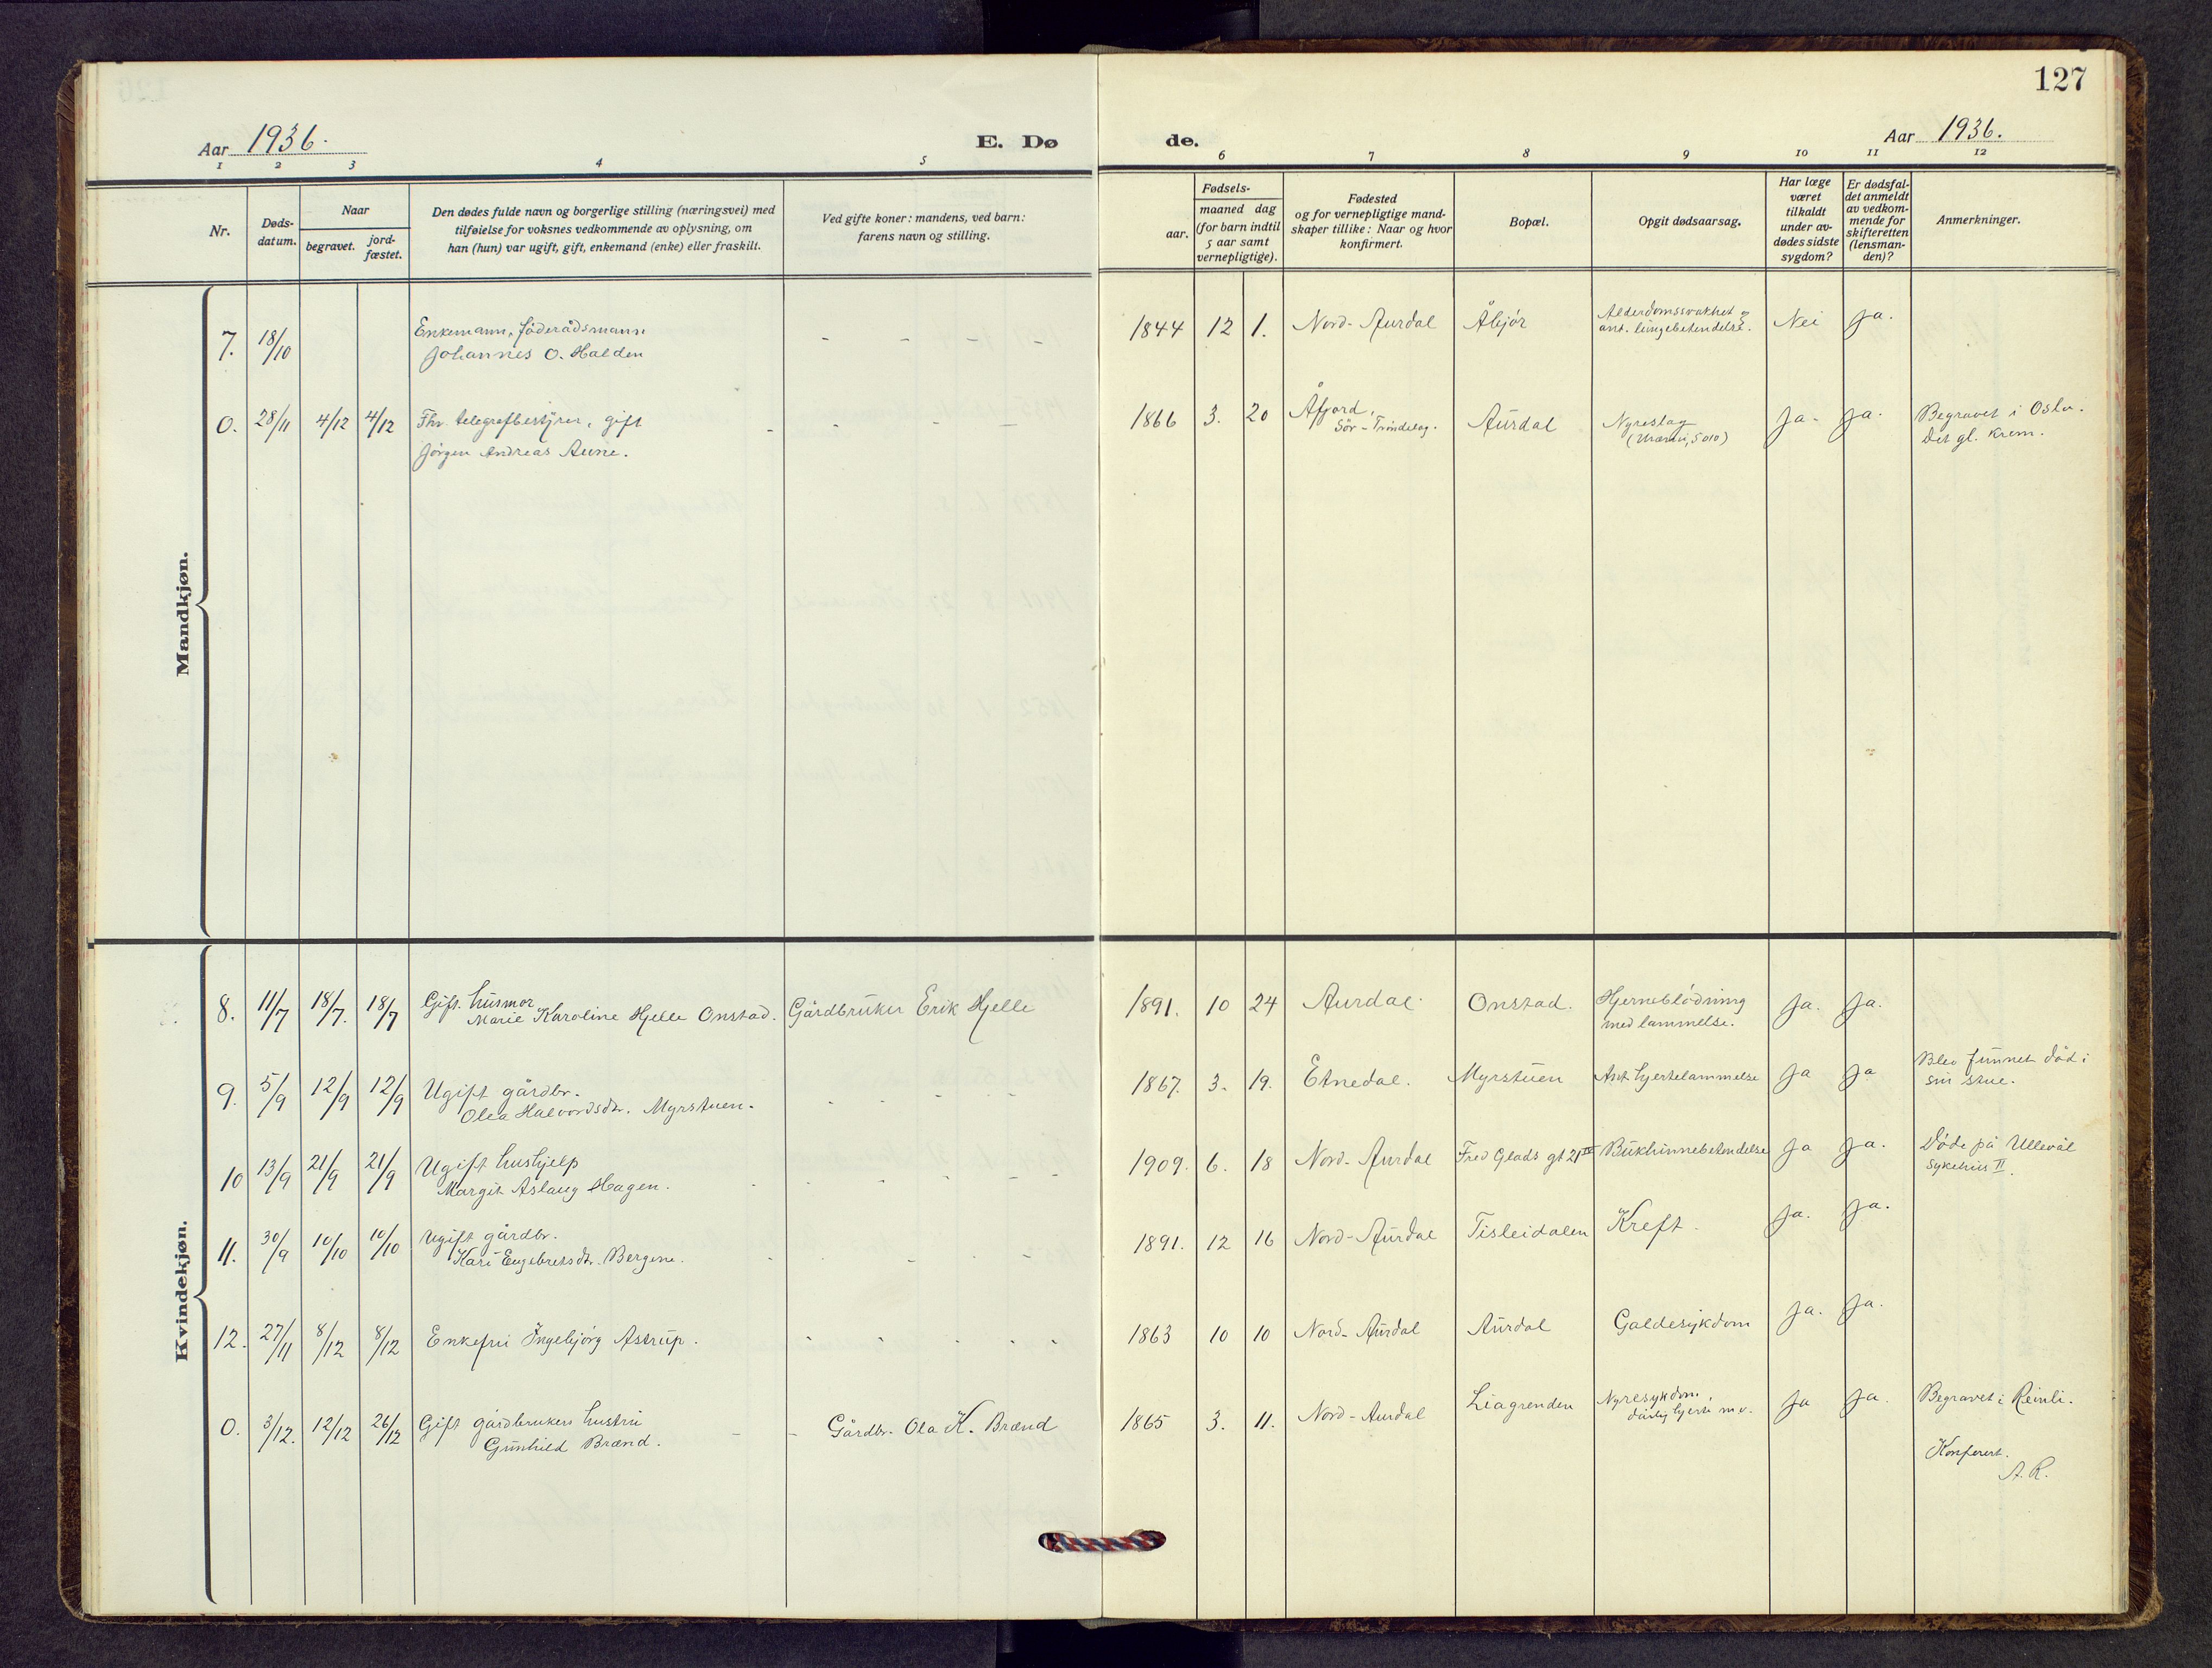 127
Aar 1936.
E. Dø
de.
Aar 1936.
1 2 3 4 5 6 7 8 9 10 11 12
Nr.
Døds-
datum.
Naar
begravet.
jord-
fæstet.
Den dødes fulde navn og borgerlige stilling (næringsvei) med
tilføielse for voksnes vedkommende av oplysning, om
han (hun) var ugift, gift, enkemand (enke) eller fraskilt.
Ved gifte koner: mandens, ved barn:
farens navn og stilling.
Fødsels-
aar.
maaned dag
(for barn indtil
5 aar samt
vernepligtige).
Fødested
og for vernepligtige mand-
skaper tillike: Naar og hvor
konfirmert.
Bopæl.
Opgit dødsaarsag.
Har læge
været
tilkaldt
under av-
dødes sidste
sygdom?
Er dødsfal-
det anmeldt
av vedkom-
mende for
skifteretten
(lensman-
den)?
Anmerkninger.
Mandkjøn.
7. 18/10
Enkemann, föderådsmann
Johannes O. Halden
- - - -
1844 12 1. Nord-Aurdal Åbjør
Alderdomssvakhet og
ant. lungebetendelse.
Nei ja.
0. 28/11 4/12 4/12
Fhv. telegrafbestyrer, gift
Jörgen Andreas Aune.
- - - -
1866 3. 20
Åfjord,
Sör-Tröndelag.
Aurdal
Nyreslag
(Uræmi,
Ja. ja.
Begravet i Oslo.
Det gl. krem.
Kvindekjøn.
8. 11/7 18/7. 18/7
Gift husmor
Marie Karoline Hjelle Onstad.
Gårdbruker Erik Hjelle
1891. 10 24 Aurdal Onstad.
Hjerneblödning
med lammelse.
Ja. Ja.
9. 5/9 12/9 12/9
Ugift gårdbr.
Olea Halvordsdtr. Myrstuen.
- - - -
1867. 3. 19. Etnedal. Myrstuen Ant. hjertelammelse Ja Ja
Blev funnet död i
sin stue.
10 13/9 21/9 21/9
Ugift hushjelp
Margit Aslaug Hagen.
- - - -
1909. 6. 18 Nord-Aurdal Fred Glads gt 21 III Bukhinnebetendelse Ja Ja.
Döde på Ullevål
sykehus II.
11. 30/9 10/10 10/10
Ugift gårdbr.
Kari Engebretsdtr. Bergene.
- - - -
1891. 12 16 Nord-Aurdal Tisleidalen Kreft. Ja. Ja.
12. 27/11 8/12 8/12 Enkefru Ingebjörg Astrup.
- - - -
1863 10 10 Nord-Aurdal Aurdal Galdesykdom Ja. Ja.
0. 3/12. 12/12 26/12
Gift gårdbrukers hustru
Gunhild Brænd.
Gårdbr. Ola K. Brænd
1865 3. 11. Nord-Aurdal Liagrenden
Nyresykdom,
dårlig hjerte m.v.
Ja Ja.
Begravet i Reinli.
Konferert.
A.R.